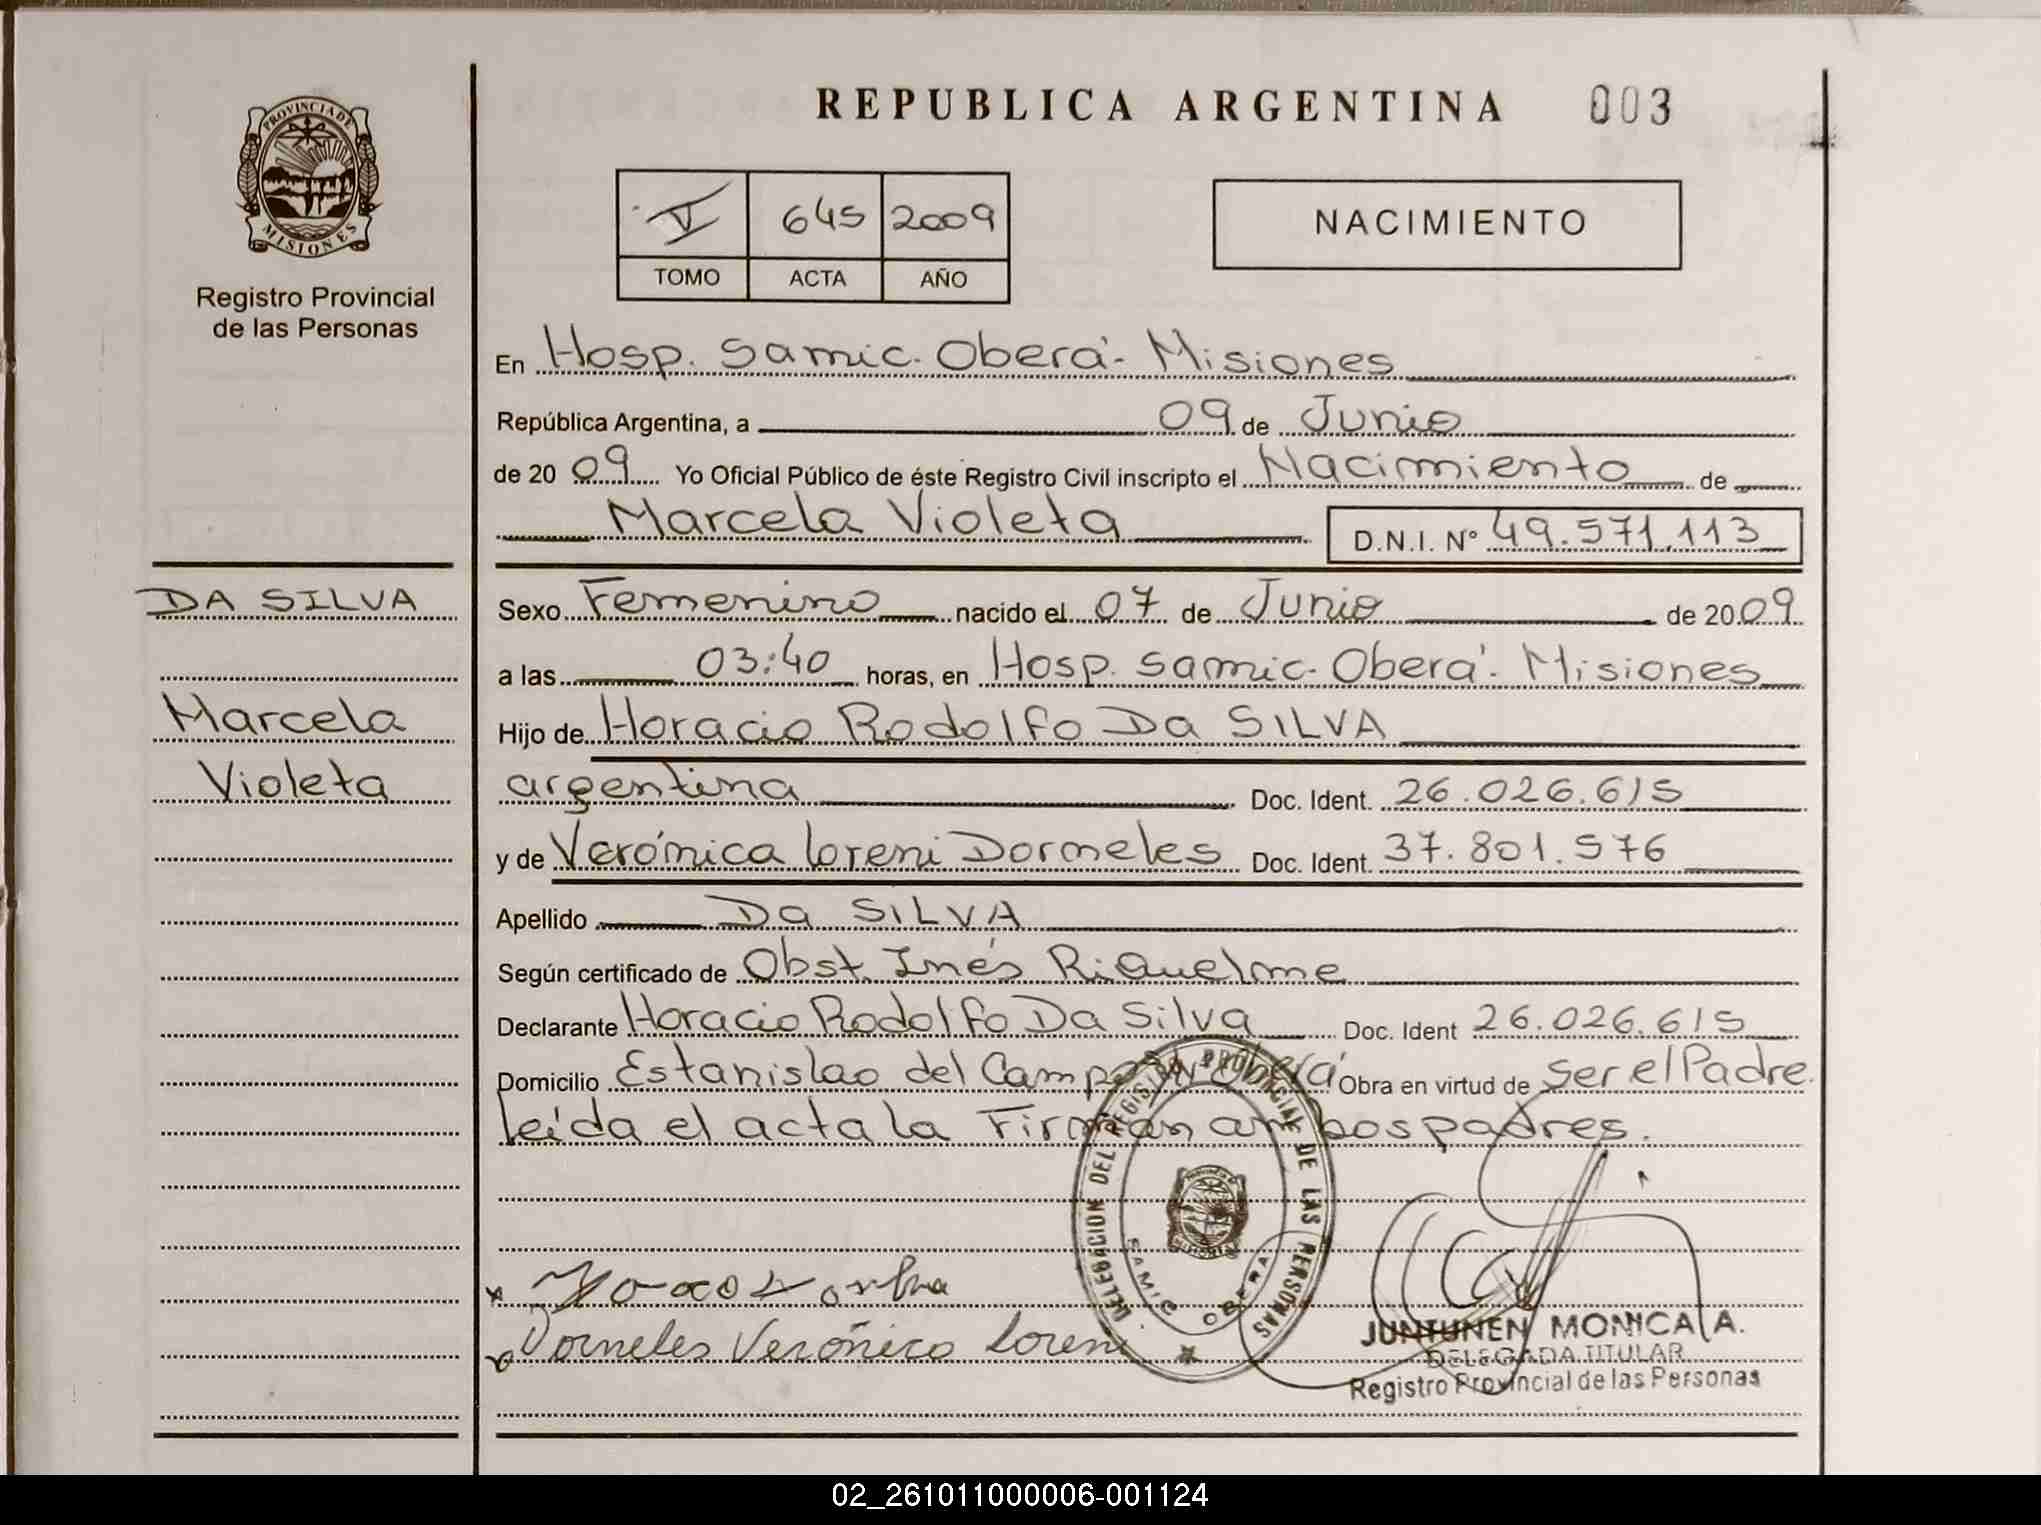 PROVINCIA DE
MISIONES
Registro Provincial
de las Personas
DA SILVA
Marcela
Violeta
REPUBLICA ARGENTINA 003
V 645 2009
TOMO ACTA AÑO
NACIMIENTO
En Hosp. Samic. Oberá - Misiones
República Argentina, a 09 de Junio
de 20 09 Yo Oficial Público de éste Registro Civil inscripto el Nacimiento de
Marcela Violeta D.N.I. N° 49.571.113
Sexo Femenino nacido el 07 de Junio de 20 09
a las 03:40 horas, en Hosp. Samic - Oberá - Misiones
Hijo de Horacio Rodolfo Da SILVA
argentina Doc. Ident. 26.026.615
y de Verónica Loreni Dorneles Doc. Ident. 37.801.576
Apellido Da SILVA
Según certificado de Obst. Inés Riquelme
Declarante Horacio Rodolfo Da Silva Doc. Ident 26.026.615
Domicilio Estanislao del Campo Oberá Obra en virtud de ser el Padre.
Leída el acta la Firman ambos padres.
DELEGACION DEL REGISTRO PROVINCIAL DE LAS PERSONAS
SAMIC OBERA
Dorneles Verónica Loreni
JUNTUNEN MONICA A.
DELEGADA TITULAR
Registro Provincial de las Personas
02_261011000006-001124